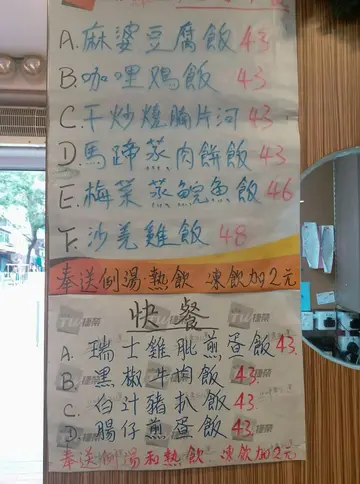 A.麻婆豆腐飯 43
B.咖哩鸡飯 43
C.干炒燒腩片河 43
D.馬蹄蒸肉餅飯 43
E.梅菜蒸鯇魚飯 46
F.沙羌雞飯 48
奉送例湯·熱飲 凍飲加2元
快餐
A. 瑞士雞肶煎蛋飯 43.
B. 黑椒牛肉飯 43.
C. 白汁豬扒飯 43.
D. 腸仔煎蛋飯 43.
奉送例湯和熱飲 凍飲加2元